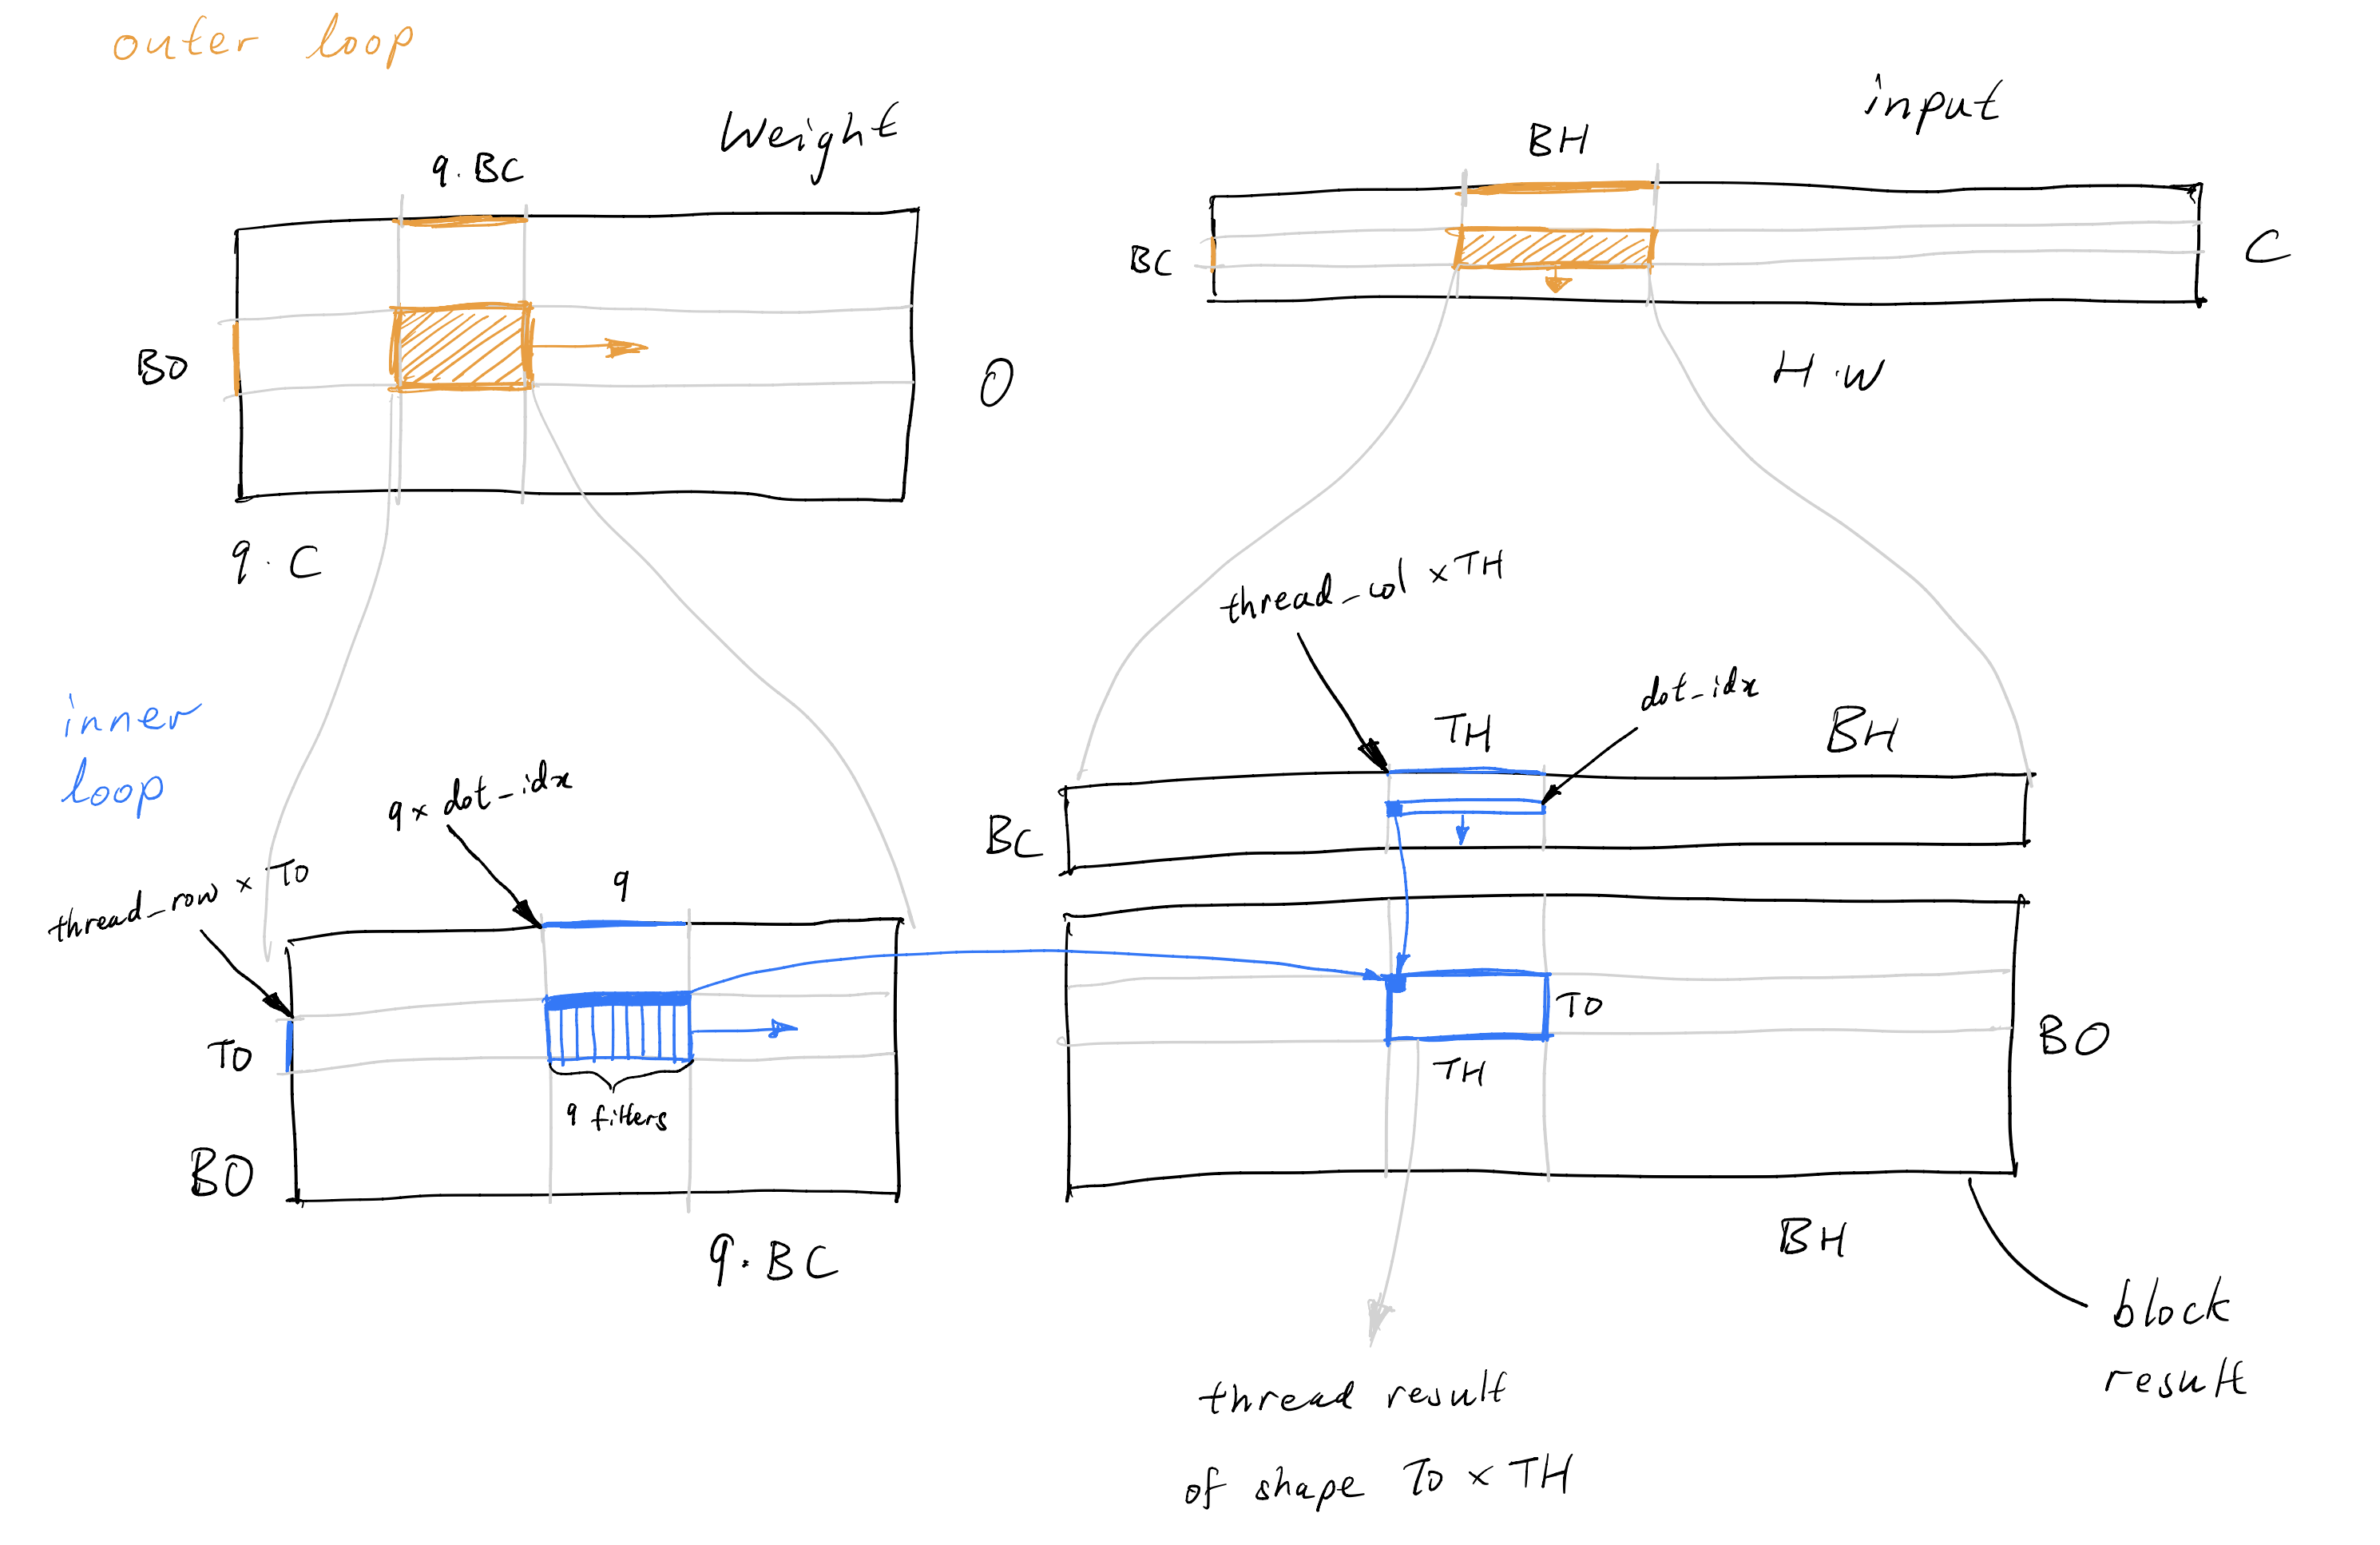 outer loop
Weight
9.BC
BO
O
9.C
input
BH
BC
C
H.W
inner
loop
thread_row × TO
9× dot_idx
9
TO
9 filters
BO
9.BC
thread_col ×TH
dot_idx
TH
BH
BC
TO
TH
BO
BH
block
result
thread result
of shape TO × TH